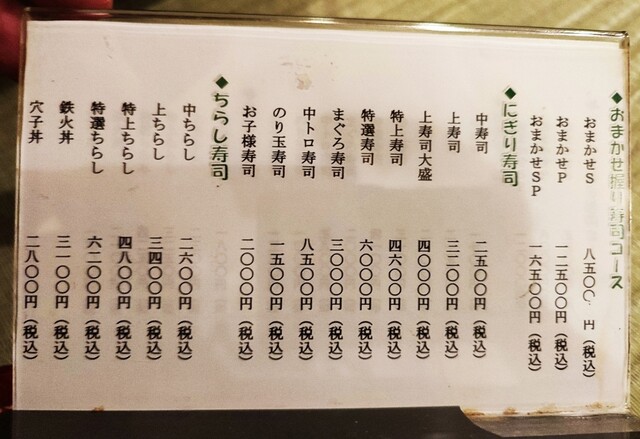 ◆おまかせ握り寿司コース
おまかせS 八五〇〇円（税込）
おまかせP 一二五〇〇円（税込）
おまかせSP 一六五〇〇円（税込）
◆にぎり寿司
中寿司 二五〇〇円（税込）
上寿司 三二〇〇円（税込）
上寿司大盛 四〇〇〇円（税込）
特上寿司 四六〇〇円（税込）
特選寿司 六〇〇〇円（税込）
まぐろ寿司 三〇〇〇円（税込）
中トロ寿司 八五〇〇円（税込）
のり玉寿司 一五〇〇円（税込）
お子様寿司 二〇〇〇円（税込）
◆ちらし寿司
中ちらし 二六〇〇円（税込）
上ちらし 三四〇〇円（税込）
特上ちらし 四八〇〇円（税込）
特選ちらし 六二〇〇円（税込）
鉄火丼 三一〇〇円（税込）
穴子丼 二八〇〇円（税込）